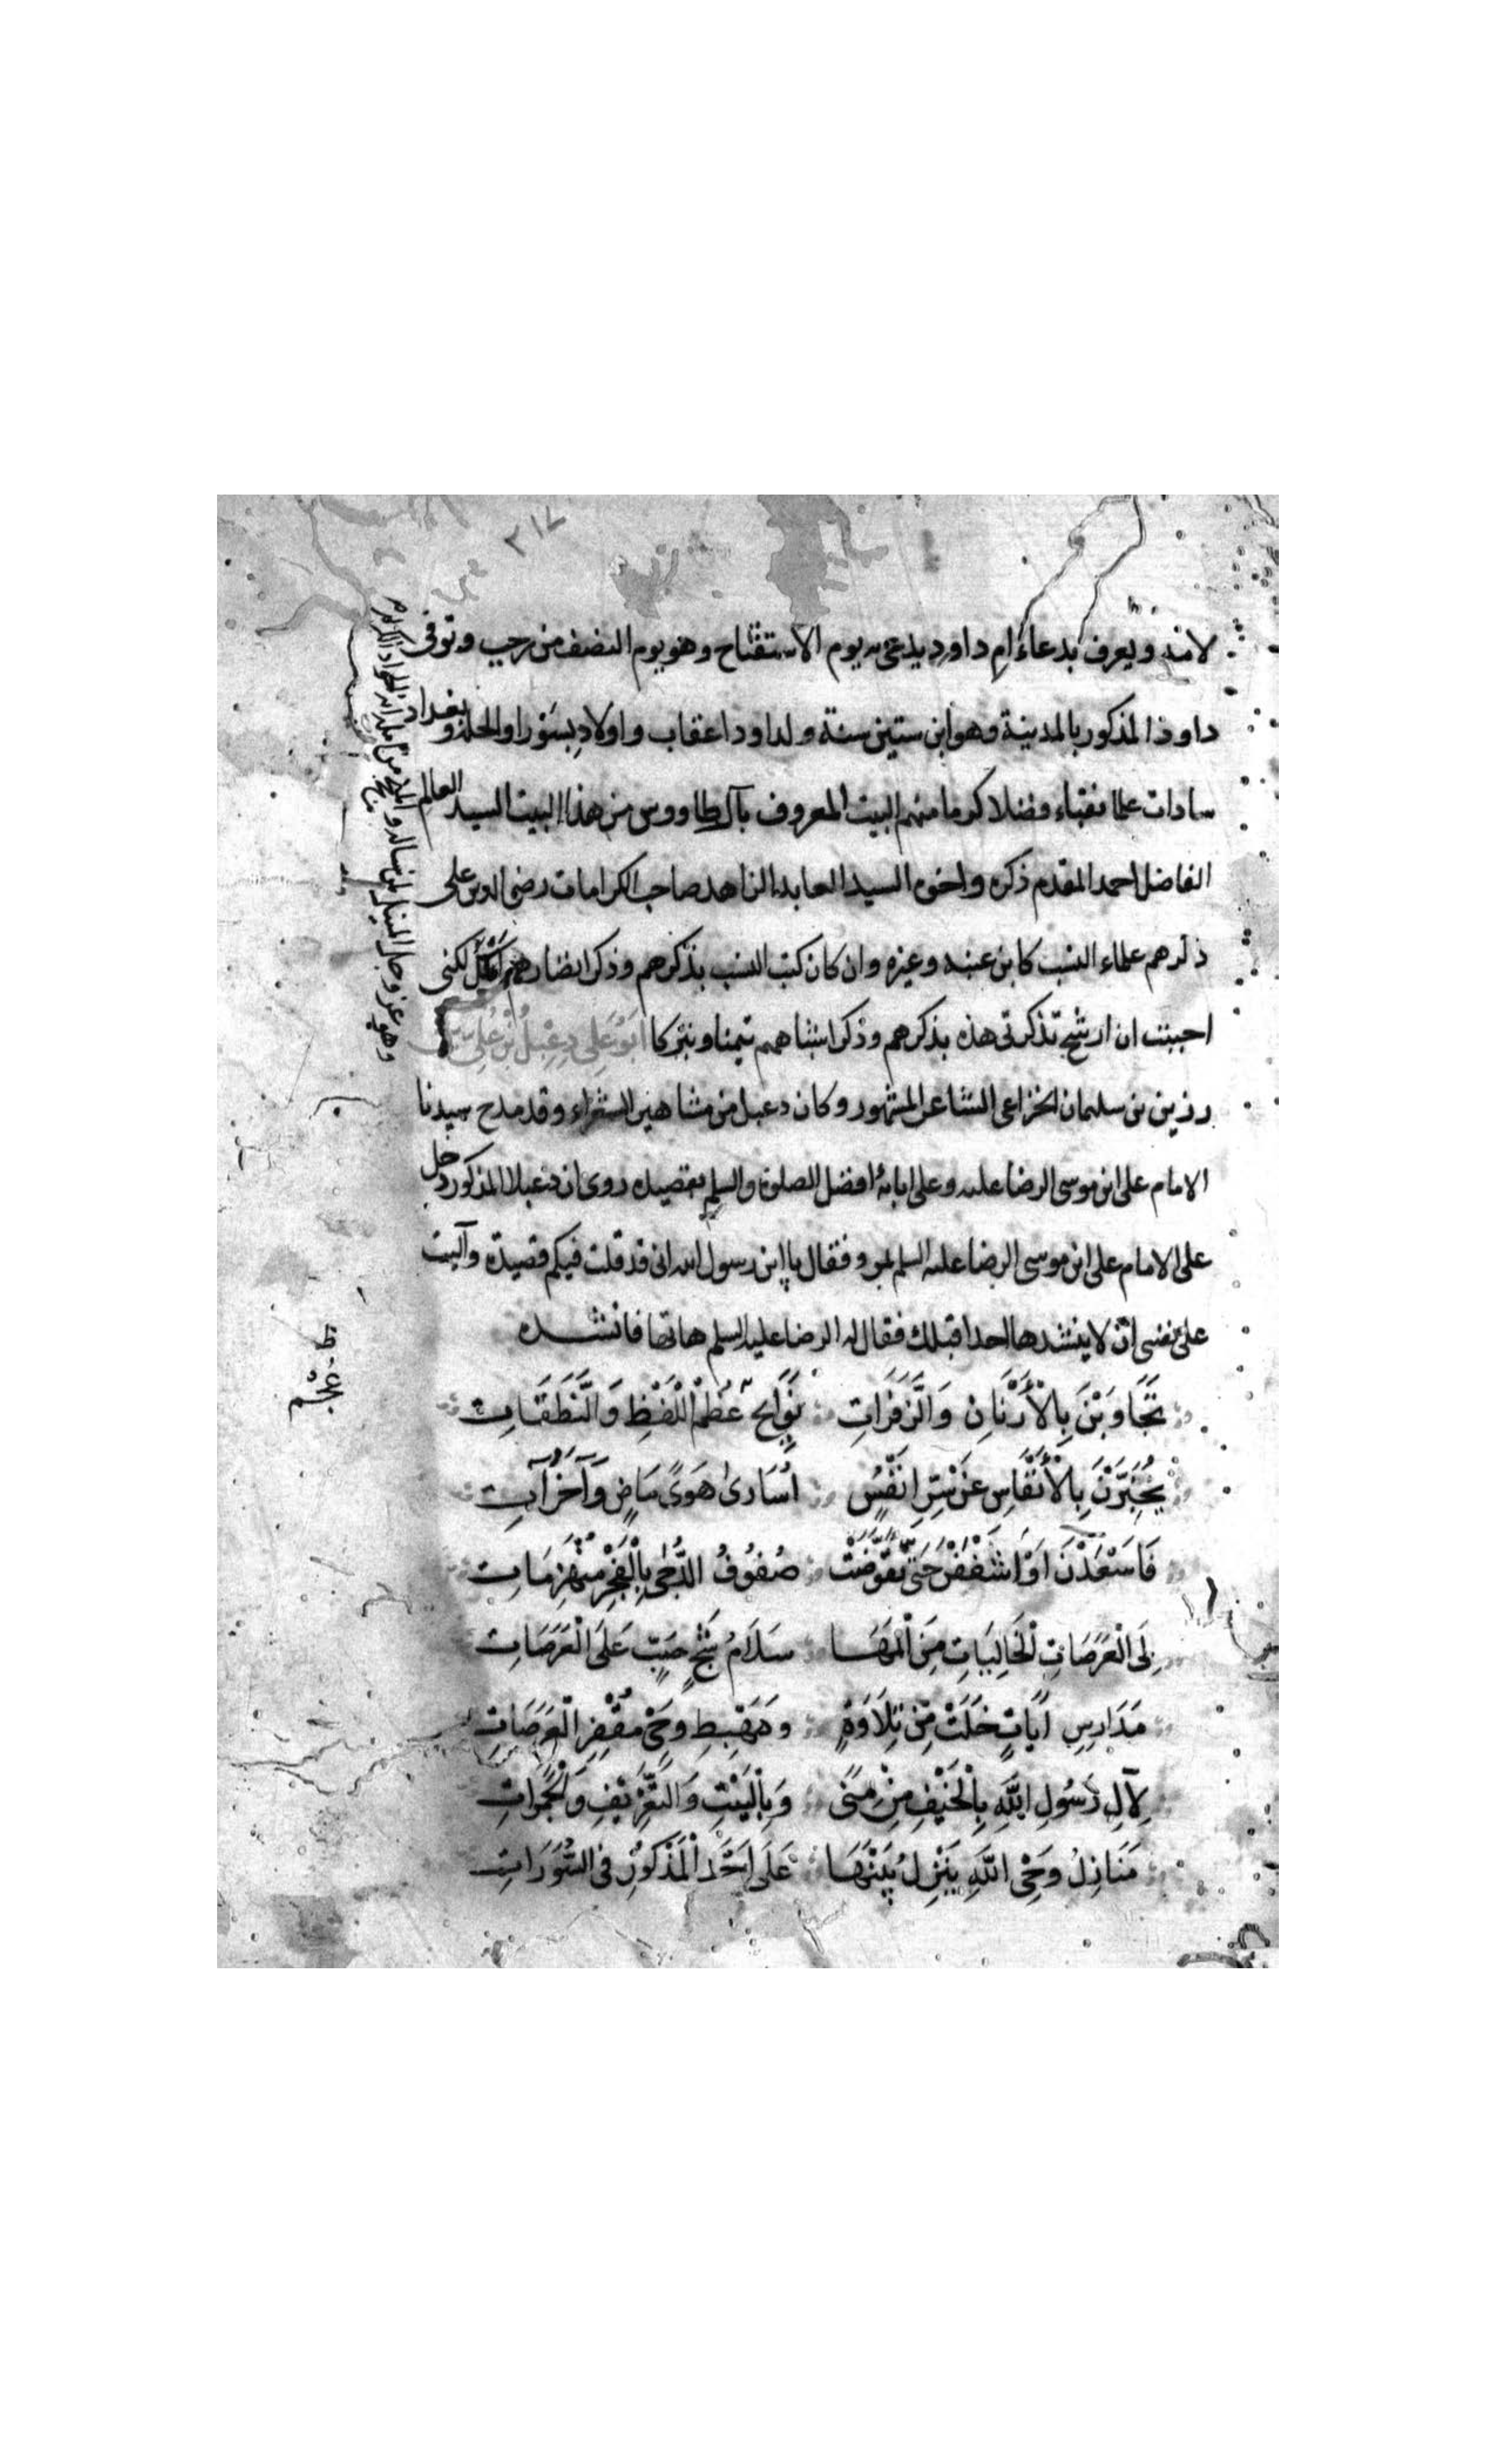 ٣١٧
لابنه ويعرف بدعاء ام داود يدعى به يوم الاستفتاح وهو يوم النصف من رجب وتوفى
داود المذكور بالمدينة وهو ابن ستين سنة ولداود اعقاب واولاد بسورا والحلة وبغداد
سادات علما نقباء وفضلا كرما منهم البيت المعروف بآل طاووس من هذا البيت السيد العالم
الفاضل احمد المقدم ذكره واخوه السيد العابد الزاهد صاحب الكرامات رضى الدين على
ذكرهم علماء النسب كابن عنبه وغيره وان كان كتب النسب بذكرهم وذكر انضارهم لكنى
احببت ان ارشح تذكرتى هذه بذكرهم وذكر اشباههم تيمنا وتبركا ابو على دعبل بن على بن
رزين بن سليمان الخزاعى الشاعر المشهور وكان دعبل من مشاهير الشعراء وقد مدح سيدنا
الامام على ابن موسى الرضا عليه وعلى ابائه افضل الصلوة والسلم بقصيده روى ان دعبلا المذكور دخل
على الامام على ابن موسى الرضا عليه السلم بمرو فقال يا ابن رسول الله انى قد قلت فيكم قصيدة وآليت
على نفسى ان لا ينشدها احدا قبلك فقال له الرضا عليه السلم هاتها فانشده
تَجَاوَبْنَ بِالْأَرْنَانِ وَالزَّفَرَاتِ نَوَايِحُ عُظْمُ اللَّفْظِ وَالنَّطَقَاتِ
يُخَبِّرْنَ بِالْأَنْفَاسِ عَنْ سِرِّ انْفُسٍ اُسَارَى هَوًى مَاضٍ وَآخَرَ آتِ
فَاسْعَدْنَ اَوْ اسْعَفْنَ حَتَّى تَقَوَّضَتْ صُفُوفُ الدُّجَى بِالْفَجْرِ مُنْهَزِمَاتِ
عَلَى الْعَرَصَاتِ الْخَالِيَاتِ مِنَ الْمَهَا سَلَامُ شَجٍ صَبٍّ عَلَى الْعَرَصَاتِ
مَدَارِسِ ايَاتٍ خَلَتْ مِنْ تِلَاوَةٍ وَمَهْبِطِ وَحْىٍ مُقْفِرِ الْعَرَصَاتِ
لِآلِ رَسُولِ اللهِ بِالْخَيْفِ مِنْ مِنًى وَبِالْبَيْتِ وَالتَّعْرِيفِ وَالْجَمَرَاتِ
مَنَازِلُ وَحْىِ اللهِ يَنْزِلُ بَيْنَهَا عَلَى اَحْمَدَ الْمَذْكُورِ فِى السُّوَرَاتِ